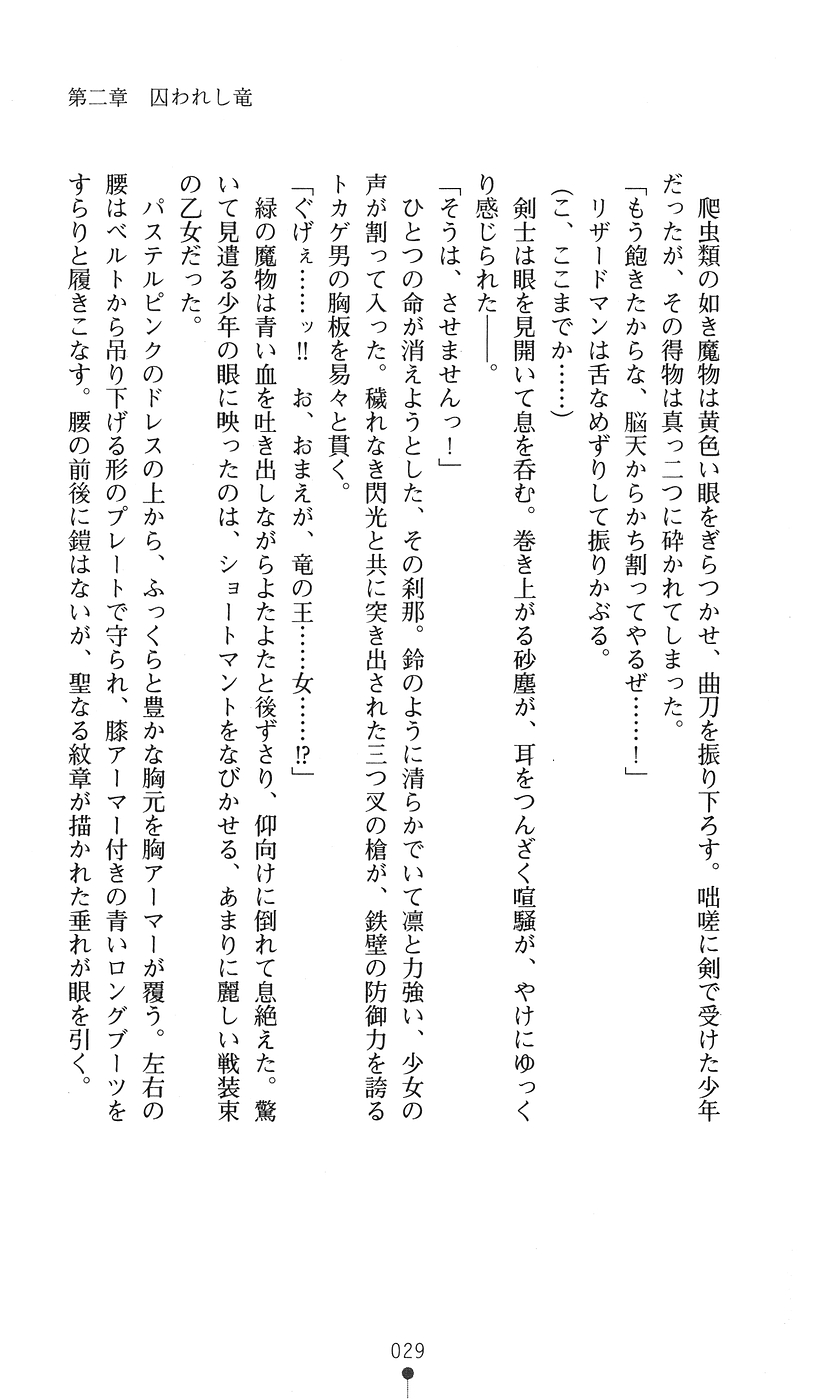 第二章　囚われし竜
　爬虫類の如き魔物は黄色い眼をぎらつかせ、曲刀を振り下ろす。咄嗟に剣で受けた少年
だったが、その得物は真っ二つに砕かれてしまった。
「もう飽きたからな、脳天からかち割ってやるぜ……！」
　リザードマンは舌なめずりして振りかぶる。
（こ、ここまでか……）
　剣士は眼を見開いて息を呑む。巻き上がる砂塵が、耳をつんざく喧騒が、やけにゆっく
り感じられた――。
「そうは、させませんっ！」
　ひとつの命が消えようとした、その刹那。鈴のように清らかでいて凛と力強い、少女の
声が割って入った。穢れなき閃光と共に突き出された三つ叉の槍が、鉄壁の防御力を誇る
トカゲ男の胸板を易々と貫く。
「ぐげぇ……ッ‼　お、おまえが、竜の王……女……⁉」
　緑の魔物は青い血を吐き出しながらよたよたと後ずさり、仰向けに倒れて息絶えた。驚
いて見遣る少年の眼に映ったのは、ショートマントをなびかせる、あまりに麗しい戦装束
の乙女だった。
　パステルピンクのドレスの上から、ふっくらと豊かな胸元を胸アーマーが覆う。左右の
腰はベルトから吊り下げる形のプレートで守られ、膝アーマー付きの青いロングブーツを
すらりと履きこなす。腰の前後に鎧はないが、聖なる紋章が描かれた垂れが眼を引く。
029